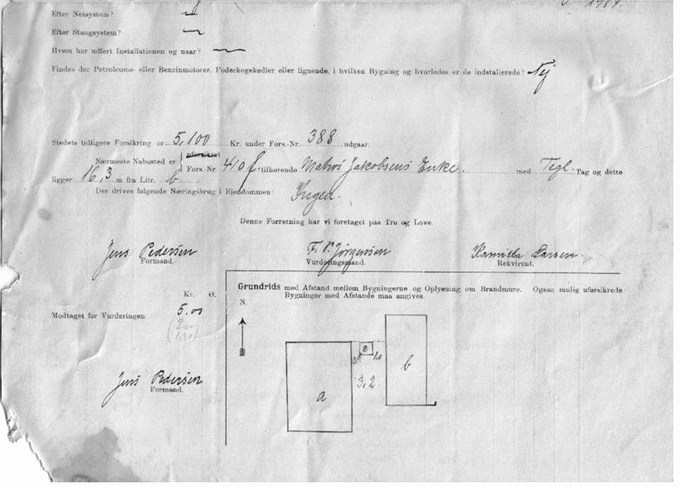 Efter Netsystem?
Efter Slangsystem?
Hvem har udført Installationen og naar?
Findes der Petroleums- eller Benzinmotorer, Foderkogekedler eller lignende, i hvilken Bygning og hvorledes er de indstallerede? Nej
Stedets tidligere Forsikring er 5,100 Kr. under Fors.-Nr. 388 udgaar.
Nærmeste Nabosted er { uforsikret
Fors.-Nr. 410 f tilhørende Matros Jakobsens Enke. med Tegl-Tag og dette
ligger 16,3 m fra Litr. b
Der drives følgende Næringsbrug i Ejendommen: Ingen.
Denne Forretning har vi foretaget paa Tro og Love.
Jens Pedersen F. P. Jørgensen Kamilla Larsen
Formand. Vurderingsmand. Rekvirent.
Kr. Ø.
Modtaget for Vurderingen 5.00
Jens Pedersen
Formand.
Grundrids med Afstand mellem Bygningerne og Oplysning om Brandmure. Ogsaa mulig uforsikrede
Bygninger med Afstande maa angives.
N.
a
b
3,2